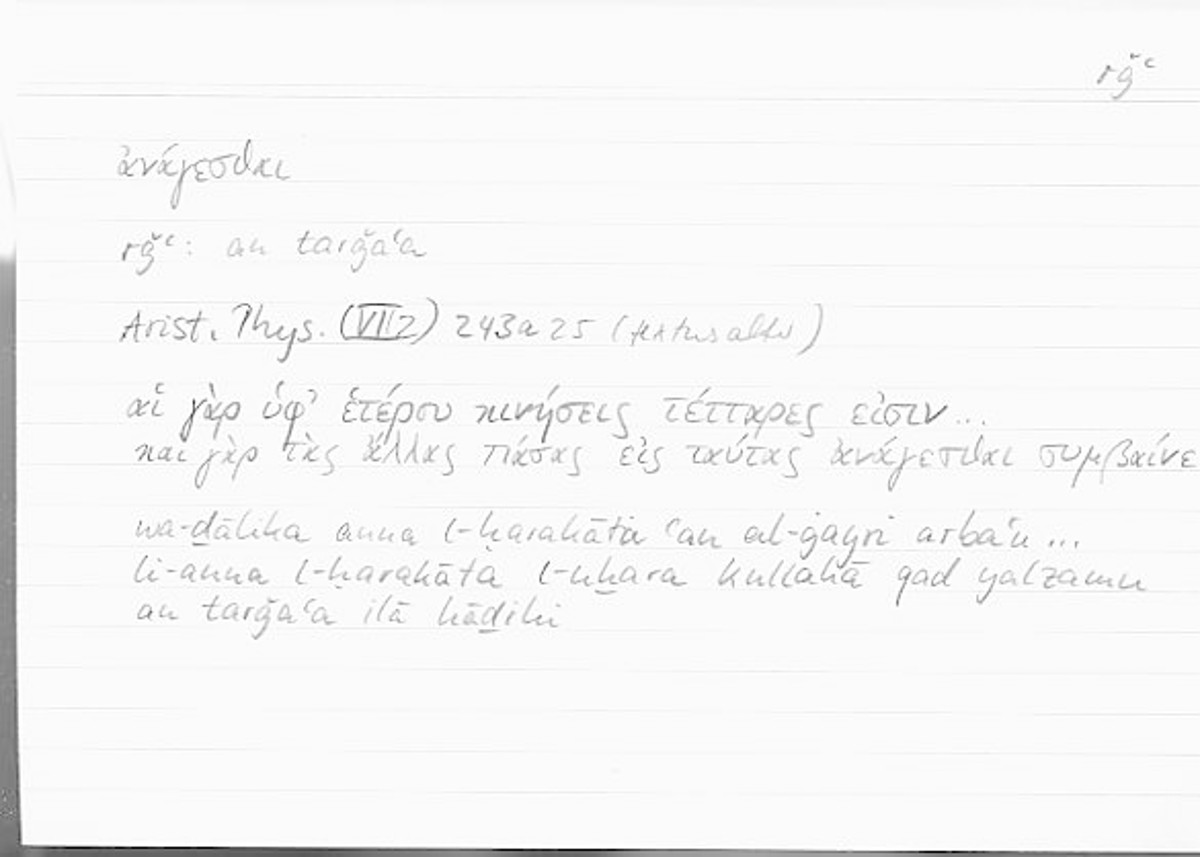 rǧʿ
ἀνάγεσθαι
rǧʿ: an tarǧaʿa
Arist. Phys. (VII2) 243a25 (textus alter)
αἱ γὰρ ὑφ' ἑτέρου κινήσεις τέτταρες εἰσιν...
και γὰρ τὰς ἄλλας πάσας εἰς ταύτας ἀνάγεσθαι συμβαίνε
wa-ḏālika anna l-ḥarakāti ʿan al-ġayri arbaʿu ...
li-anna l-ḥarakāta l-uḫara kullahā qad yalzamu
an tarǧaʿa ilā hāḏihi